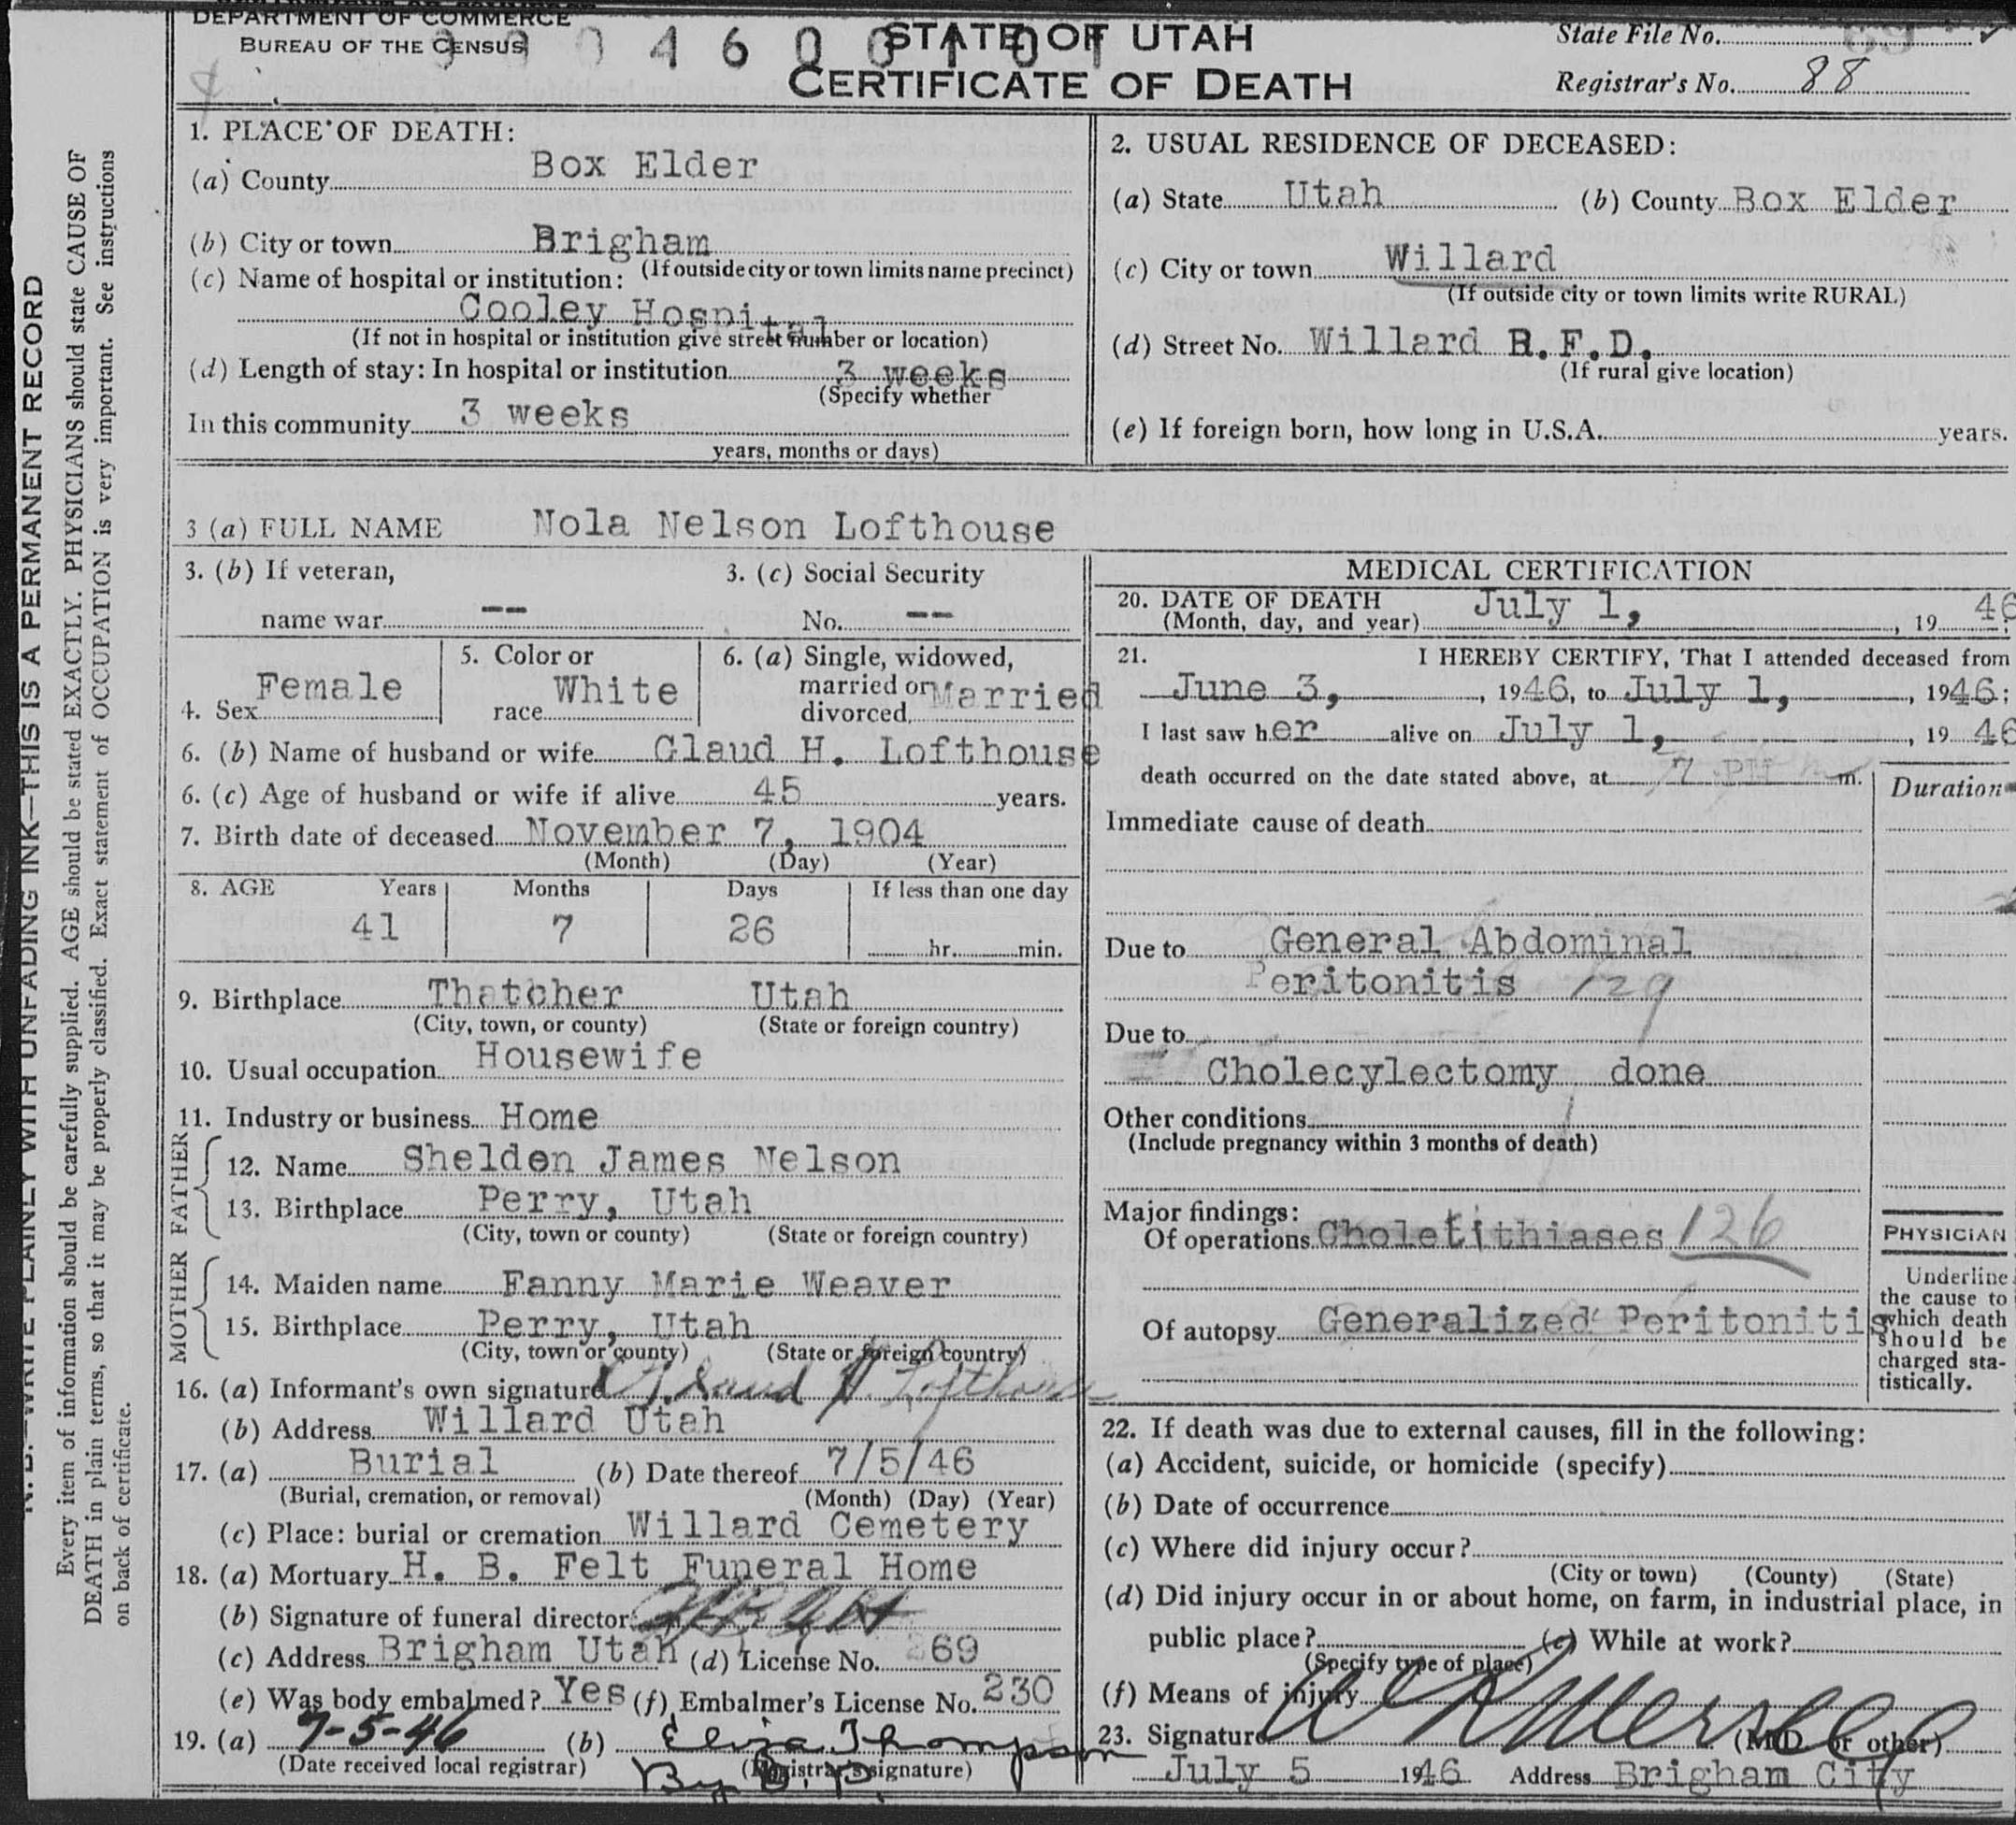 DEPARTMENT OF COMMERCE
BUREAU OF THE CENSUS
STATE OF UTAH
CERTIFICATE OF DEATH
State File No.
Registrar's No. 88
1. PLACE OF DEATH:
(a) County Box Elder
(b) City or town Brigham
(If outside city or town limits name precinct)
(c) Name of hospital or institution:
Cooley Hospital
(If not in hospital or institution give street number or location)
(d) Length of stay: In hospital or institution 3 weeks
(Specify whether
In this community 3 weeks
years, months or days)
2. USUAL RESIDENCE OF DECEASED:
(a) State Utah (b) County Box Elder
(c) City or town Willard
(If outside city or town limits write RURAL)
(d) Street No. Willard R.F.D.
(If rural give location)
(e) If foreign born, how long in U.S.A. years.
3 (a) FULL NAME Nola Nelson Lofthouse
3. (b) If veteran,
name war --
3. (c) Social Security
No. --
4. Sex Female
5. Color or
race White
6. (a) Single, widowed,
married or
divorced, Married
6. (b) Name of husband or wife Glaud H. Lofthouse
6. (c) Age of husband or wife if alive 45 years.
7. Birth date of deceased November 7, 1904
(Month) (Day) (Year)
8. AGE Years Months Days If less than one day
41 7 26 hr. min.
9. Birthplace Thatcher Utah
(City, town, or county) (State or foreign country)
10. Usual occupation Housewife
11. Industry or business Home
FATHER
12. Name Sheldon James Nelson
13. Birthplace Perry, Utah
(City, town or county) (State or foreign country)
MOTHER
14. Maiden name Fanny Marie Weaver
15. Birthplace Perry, Utah
(City, town or county) (State or foreign country)
16. (a) Informant's own signature Glaud H. Lofthouse
(b) Address Willard Utah
17. (a) Burial (b) Date thereof 7/5/46
(Burial, cremation, or removal) (Month) (Day) (Year)
(c) Place: burial or cremation Willard Cemetery
18. (a) Mortuary H. B. Felt Funeral Home
(b) Signature of funeral director
(c) Address Brigham Utah (d) License No. 69
(e) Was body embalmed? Yes (f) Embalmer's License No. 230
19. (a) 7-5-46 (b) Eliza Thompson
(Date received local registrar) (Registrar's signature)
By
MEDICAL CERTIFICATION
20. DATE OF DEATH
(Month, day, and year) July 1, , 19 46
21. I HEREBY CERTIFY, That I attended deceased from
June 3, , 1946, to July 1, , 1946;
I last saw her alive on July 1, , 19 46
death occurred on the date stated above, at 7 PM m.
Duration
Immediate cause of death
Due to General Abdominal
Peritonitis 129
Due to
Cholecylectomy done
Other conditions
(Include pregnancy within 3 months of death)
Major findings:
Of operations Choletithiases 126
Of autopsy Generalized Peritonitis
PHYSICIAN
Underline
the cause to
which death
should be
charged sta-
tistically.
22. If death was due to external causes, fill in the following:
(a) Accident, suicide, or homicide (specify)
(b) Date of occurrence
(c) Where did injury occur?
(City or town) (County) (State)
(d) Did injury occur in or about home, on farm, in industrial place, in
public place? (e) While at work?
(Specify type of place)
(f) Means of injury
23. Signature (M.D. or other)
July 5 1946 Address Brigham City
N. B.—WRITE PLAINLY WITH UNFADING INK—THIS IS A PERMANENT RECORD
Every item of information should be carefully supplied. AGE should be stated EXACTLY. PHYSICIANS should state CAUSE OF
DEATH in plain terms, so that it may be properly classified. Exact statement of OCCUPATION is very important. See instructions
on back of certificate.